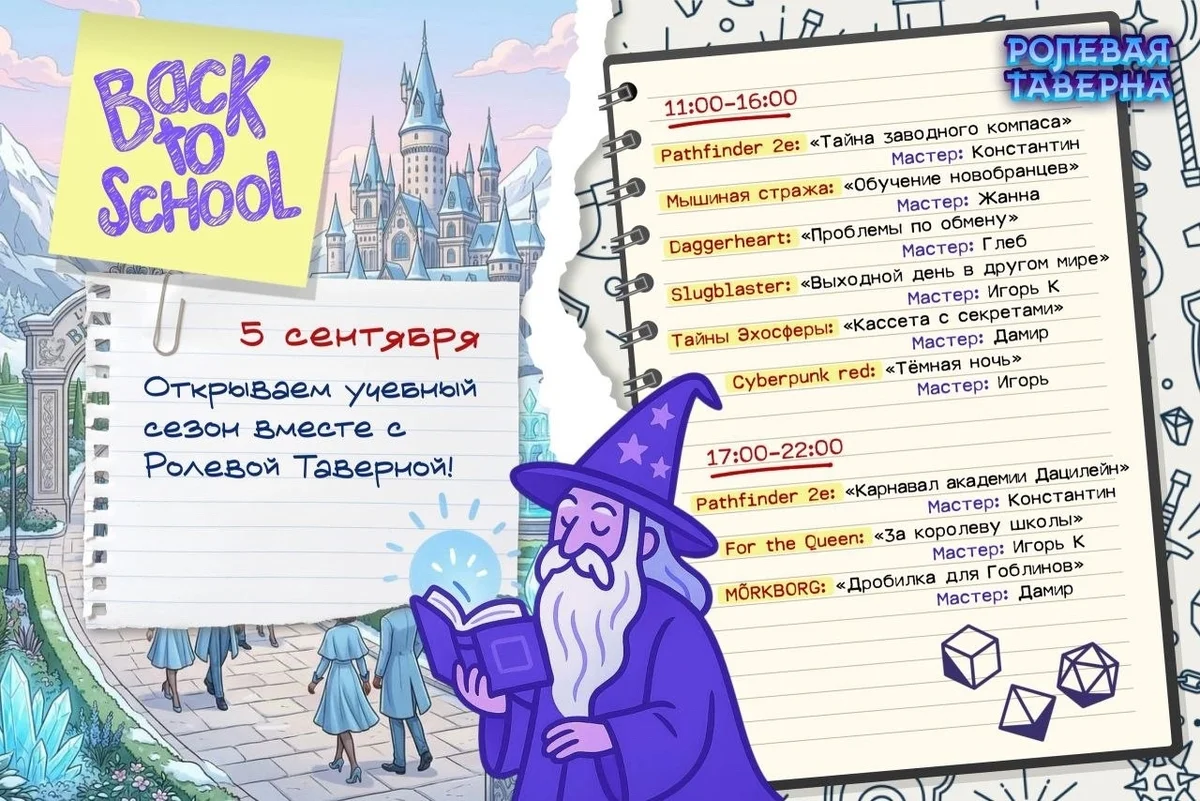 Back
to
School
5 сентября
Открываем учебный
сезон вместе с
Ролевой Таверной!
РОЛЕВАЯ
ТАВЕРНА
11:00-16:00
Pathfinder 2e: «Тайна заводного компаса»
Мастер: Константин
Мышиная стража: «Обучение новобранцев»
Мастер: Жанна
Daggerheart: «Проблемы по обмену»
Мастер: Глеб
Slugblaster: «Выходной день в другом мире»
Мастер: Игорь К
Тайны Эхосферы: «Кассета с секретами»
Мастер: Дамир
Cyberpunk red: «Тёмная ночь»
Мастер: Игорь
17:00-22:00
Pathfinder 2e: «Карнавал академии Дацилейн»
Мастер: Константин
For the Queen: «За королеву школы»
Мастер: Игорь К
MÕRKBORG: «Дробилка для Гоблинов»
Мастер: Дамир